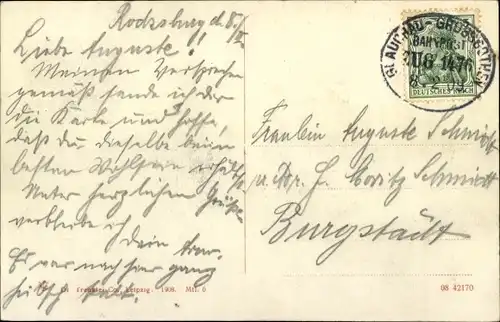 Rochsburg d. 8/
Liebe Auguste!
Meinem Versprechen
gemäß sende ich dir
die Karte und hoffe,
daß du dieselbe beim
besten Wohlsein erhältst.
Unter herzlichen Grüßen
verbleibe ich
dein
Es war nach hier ganz
hübsch
GLAUCHAU - GROSSBOTHEN
BAHNPOST
ZUG 1476
DEUTSCHES REICH
Fräulein Auguste Schmidt
p. Adr. H. Moritz Schmidt
Burgstädt
Leipzig. 1908.
08 42170